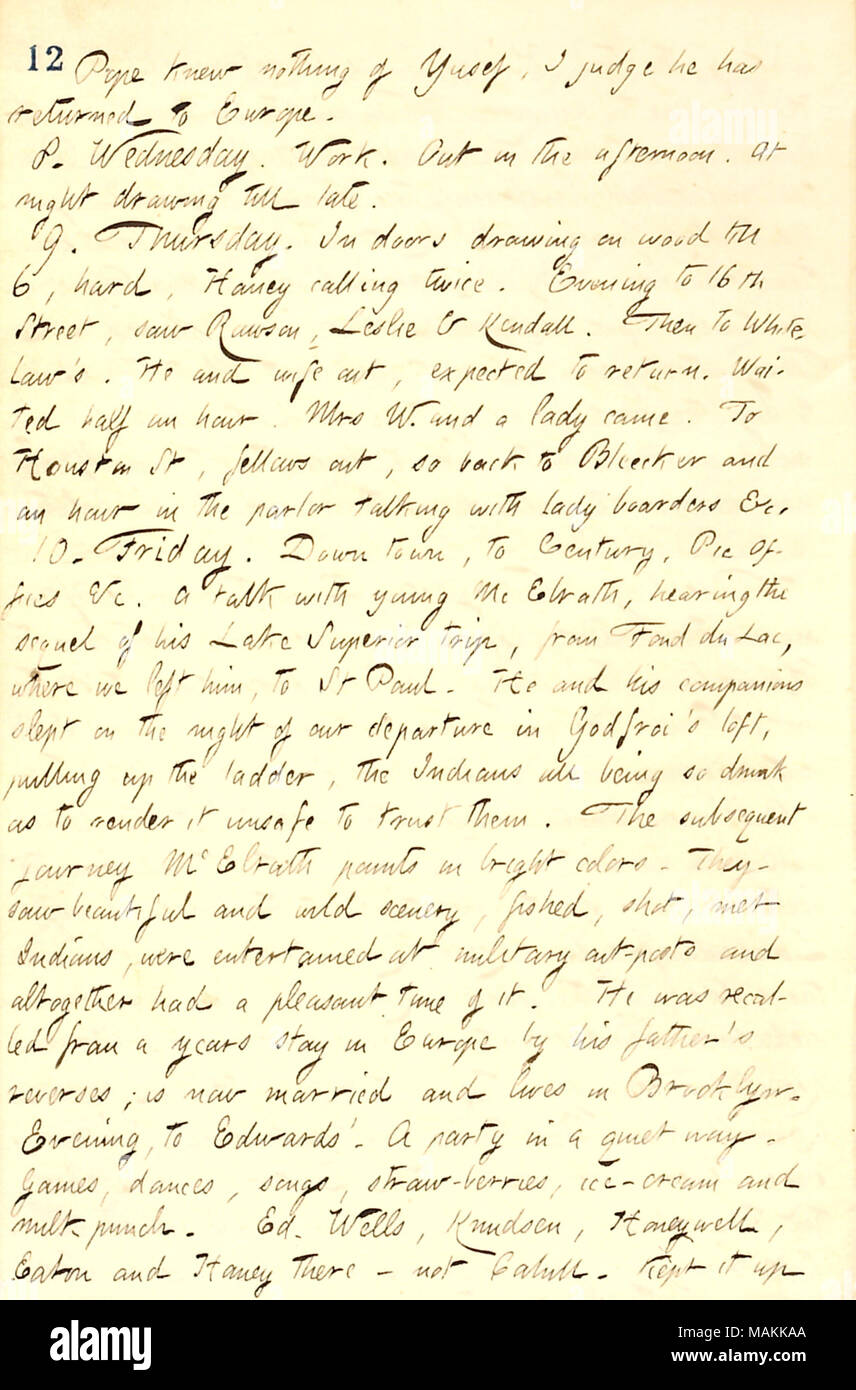 12
Pope knew nothing of Yusef, I judge he has
returned to Europe.
8. Wednesday. Work. Out in the afternoon. At
night drawing till late.
9. Thursday. In doors drawing on wood till
6, hard, Haney calling twice. Evening to 16th
Street, saw Rawson, Leslie & Kendall. Then to White-
law's. He and wife out, expected to return. Wai-
ted half an hour. Mrs W. and a lady came. To
Houston St, fellows out, so back to Bleecker and
an hour in the parlor talking with lady boarders &c.
10. Friday. Down town, to Century, Pic Of-
fices &c. A talk with young Mc Elrath, hearing the
sequel of his Lake Superior trip, from Fond du Lac,
where we left him, to St Paul. He and his companions
slept on the night of our departure in Godfroi's loft,
pulling up the ladder, the Indians all being so drunk
as to render it unsafe to trust them. The subsequent
journey McElrath paints in bright colors. They
saw beautiful and wild scenery, fished, shot, met
Indians, were entertained at military out-posts and
altogether had a pleasant time of it. He was recal-
led from a years stay in Europe by his father's
reverses; is now married and lives in Brooklyn.
Evening, to Edwards'. A party in a quiet way.
Games, dances, songs, straw-berries, ice-cream and
milk punch. Ed. Wells, Knudsen, Honeywell,
Eaton and Haney there - not Cahill. Kept it up
alamy
Image ID: MAKKAA
www.alamy.com